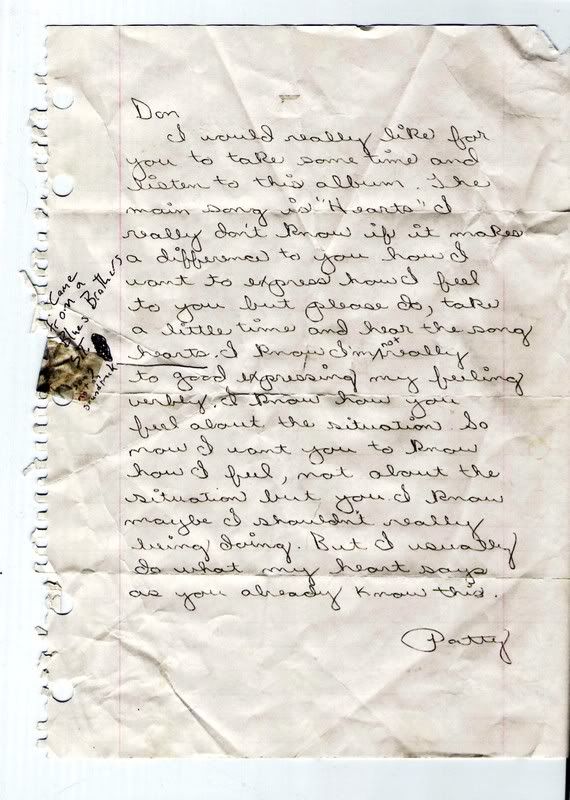 Don
I would really like for
you to take some time and
listen to this album. The
main song is "Hearts" I
really don't know if it makes
a difference to you how I
want to express how I feel
to you but please do, take
a little time and hear the song
hearts. I know I'm not really
to good expressing my feeling
verbly. I know how you
feel about the situation. So
now I want you to know
how I feel, not about the
situation but you. I know
maybe I shouldn't really
being doing. But I usually
do what my heart says
as you already know this.
Patty
Came
from a
Brothers